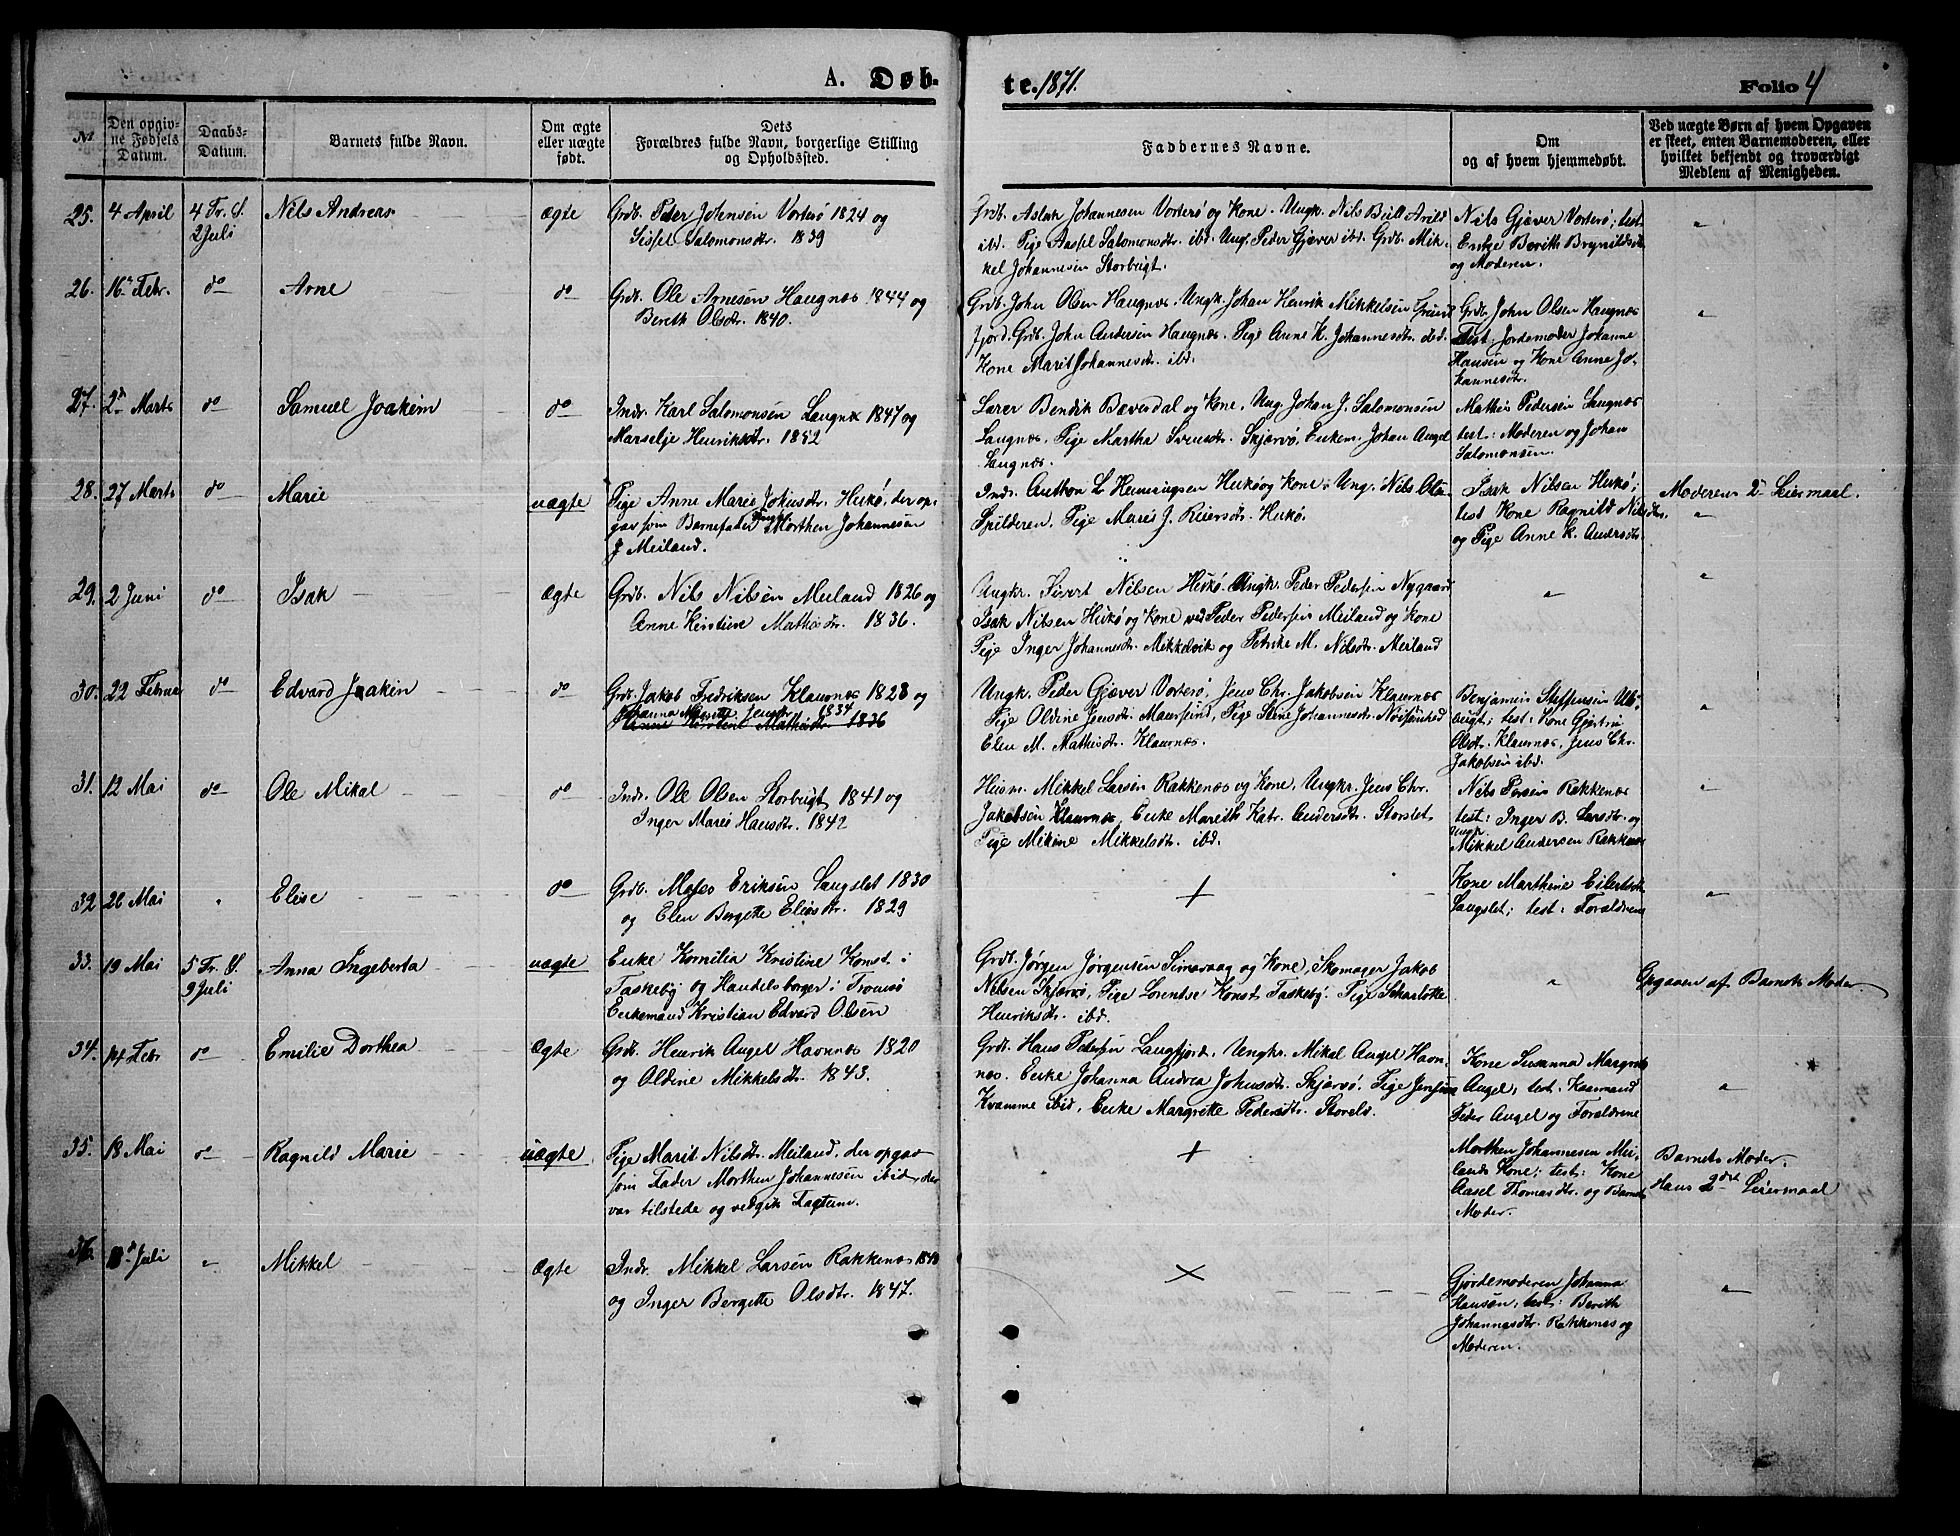 A. Døb-
te. 1871.
Folio 4
No
Den opgiv-
ne Fødsels
Datum.
Daabs-
Datum.
Barnets fulde Navn.
Om ægte
eller uægte
født.
Dets
Forældres fulde Navn, borgerlige Stilling
og Opholdssted.
Faddernes Navne.
Om
og af hvem hjemmedøbt.
Ved uægte Børn af hvem Opgaven
er skeet, enten Barnemoderen, eller
hvilket bekjendt og troværdigt
Medlem af Menigheden.
25. 4 April
4 Tr. S.
2 Juli
Nils Andreas
Ægte
Grdb. Peder Johnsen Vorterø 1824 og
Sissel Salomonsdtr. 1839
Grdb. Aslak Johannesen Vorterø og Kone. Ungk. Nils Bull Arild
ibd. Pige Aassel Salomonsdtr. ibd. Ungk. Peder Gjæver ibd. Grdb. Mik-
kel Johannesen Storbugt.
Nils Gjæver Vorterø; test.
Enke Berith Brynildsdtr.
og Moderen.
"
26. 16 Febr.
do
Arne
do
Grdb. Ole Arnesen Haugnæs 1844 og
Bereth Olsdtr. 1840.
Grdb. John Olsen Haugnæs, Ungk. Johan Henrik Mikkelsen Grund
fjord. Grdb. John Andersen Haugnæs. Pige Anne K. Johannesdtr. ibd.
Kone Marit Johannesdtr. ibd.
Grdb. John Olsen Haugnæs
Test: Jordemoder Johanne
Hansen og Kone Anne Jo-
hannesdtr.
"
27. 2 Marts
do
Samuel Joakim
do
Indr. Karl Salomonsen Laugnæs 1847 og
Marselje Henriksdtr. 1852
Lærer Bendik Bæverdal og Kone, Ung. Johan J. Salomonsen
Laugnæs, Pige Martha Svensdtr. Skjærvø, Enkem. Johan Angel
Laugnæs.
Mathis Pedersen Laugnæs
test: Moderen og Johan
Salomonsen.
28. 27 Marts
do
Marie
uægte
Pige Anne Marie Johnsdtr. Hukø, der op-
gav som Barnefader Ungk. Morthen Johannesen
f Meiland.
Indr. Anthon L Henningsen Hukø og Kone, Ung. Nils Ola-
Spilderen, Pige Maris J. Reiersdtr. Hukø.
Isak Nilsen Hukø;
test Kone Ragnild Nilsdtr.
og Pige Anne K. Andersdtr.
Moderens 2 Leiermaal.
"
29. 2 Juni
do
Isak
Ægte
Grdb. Nils Nilsen Meiland 1826 og
Anne Kirstine Mathisdtr. 1836.
Ungkr. Sivert Nilsen Hukø. Ungk. Peder Pedersen Nygaard
Isak Nilsen Hukø og Kone ved Peder Pedersen Meiland og Kone
Pige Inger Johannesdtr. Mikkelvik og Petrike M. Nilsdtr. Meiland
"
"
30. 22 Februar
do
Edvard Joakin
do
Grdb. Jakob Fredriksen Klauvnæs 1828 og
Johanna Margrette Jensdtr. 1834
Anne Kirstine Mathisdtr. 1836
Ungk. Peder Gjæver Vorterø, Jens Chr. Jakobsen Klauvnæs
Pige Oldine Jensdtr. Maursund, Pige Stine Johannesdtr. Nøisomhed
Elen M. Mathisdtr. Klauvnæs.
Benjamin Steffensen Ulö-
bugt; test: Kone Gjertru
Olsdtr. Klauvnæs, Jens Chr.
Jakobsen ibd.
"
31. 12 Mai
do
Ole Mikal
do
Indr. Ole Olsen Storbugt 1841 og
Inger Marie Hansdtr. 1842
Husm. Mikkel Larsen Rakkenæs og Kone, Ungkr. Jens Chr.
Jakobsen Klauvnæs, Enke Marith Katr. Andersdtr. Storslet.
Pige Mikine Mikkelsdtr. ibd.
Nils Persen Rakkenæs
test: Inger B. Larsdtr. og
Ungk.
Mikkel Andersen Rakkenæs
"
32 26 Mai
"
Elise
do
Grdb. Moses Eriksen Langslet 1830
og Elen Bergette Eliasdtr. 1829
+
Kone Marthine Eilertsdtr.
Langslet; test: Forældrene
"
33. 19 Mai
5 Tr. S.
9 Juli
Anna Ingeberta
uægte
Enke Kornilia Kristine Konst i
Taskeby og Handelsborger i Tromsø
Enkemand Kristian Edvard Olsen
Grdb. Jørgen Jørgensen Simavaag og Kone, Skomager Jakob
Nilsen Skjærvø, Pige Lorentse Konst Taskeby. Pige Scharlotte
Henriksdtr. ibd.
"
Opgaven af Barnets Moder.
34. 14 Febr
do
Emilie Dorthea
Ægte
Grdb. Henrik Angel Havnnæs 1820
og Oldine Mikkelsdtr. 1843.
Grdb. Hans Pedersen Langfjord, Ungkr. Mikal Angel Havn-
næs. Enke Johanna Andrea Johnsdtr. Skjærvø. Pige Jensine
Kvamme ibid, Enke Margrette Pedersdtr. Storeld.
Kone Susanna Margrete
Angel, test. Kaarmand
Peder Angel og Forældrene
"
35. 18 Mai
do
Ragnild Marie
uægte
Pige Marit Nilsdtr. Meiland, der opgav
som Fader Morthen Johannesen ibid, der
var tilstede og vedgik Factum.
+
Morthen Johannesen Mei-
lands Kone; test: Kone
Aasel Thomasdtr. og Barnets
Moder.
Barnets Moder.
Hans 2det Leiermaal
36. Juli
"
Mikkel
Ægte
Indr. Mikkel Larsen Rakkenæs 1848
og Inger Bergette Olsdtr. 1847.
×
Gjordemoderen Johanna
Hansen, test: Berith
Johannesdtr. Rakkenæs og
Moderen.
"